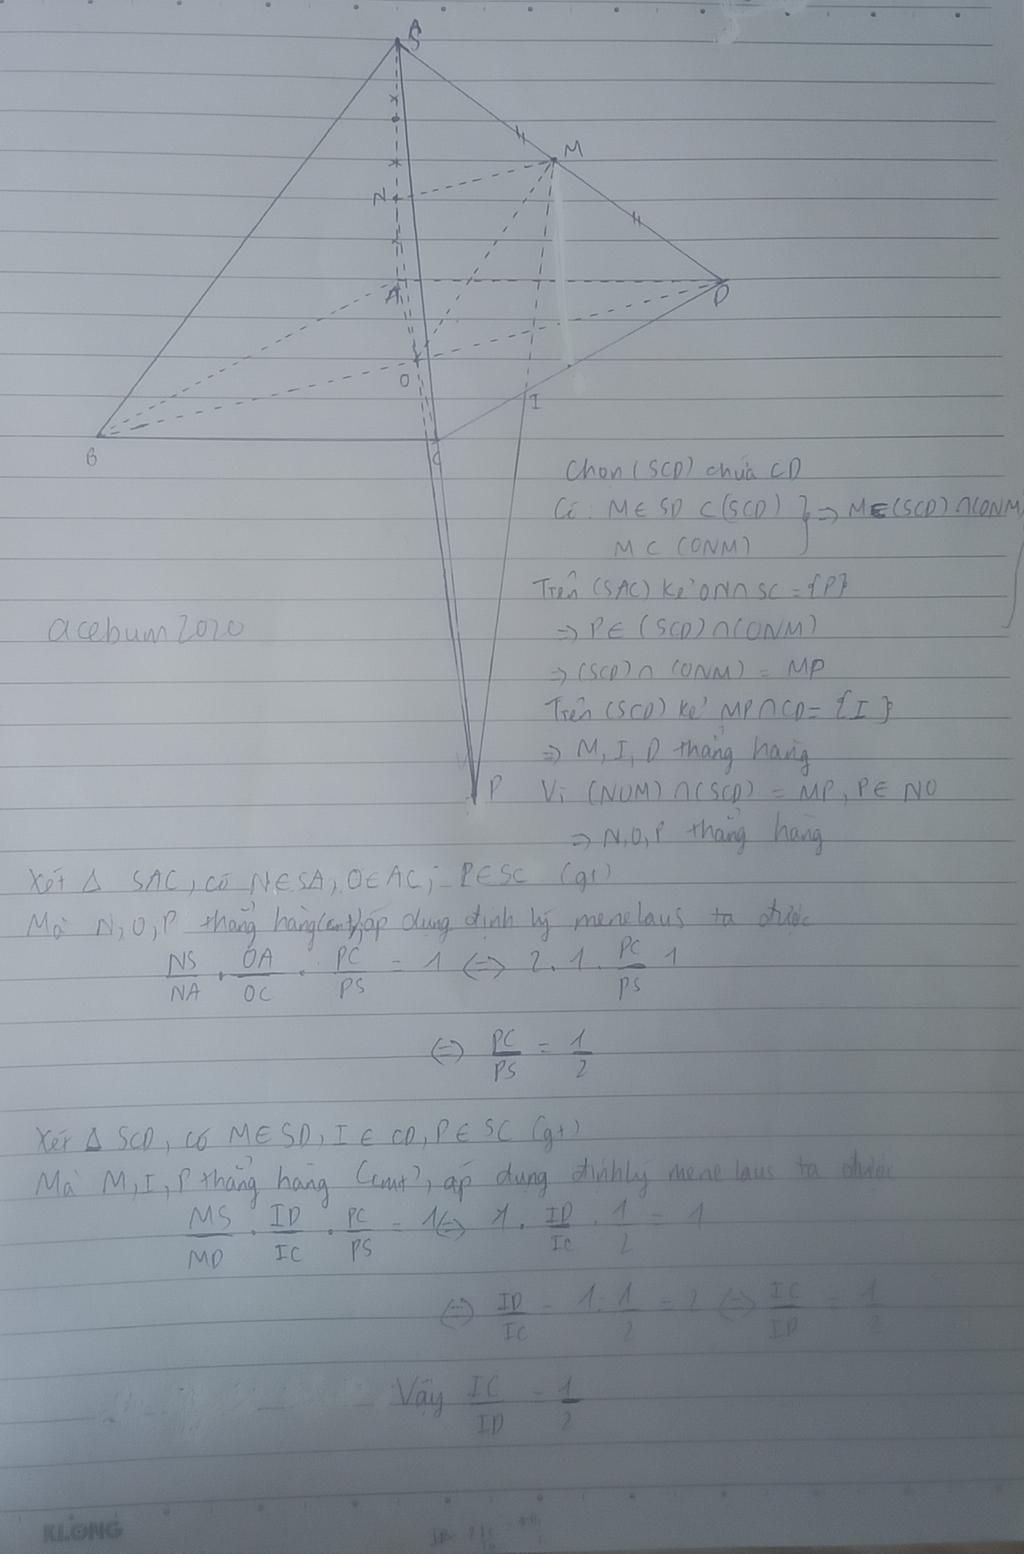 S
M
N
A
D
O
I
B
C
Chọn (SCD) chứa CD
Có: M ∈ SD ⊂ (SCD) } => M ∈ (SCD) ∩ (ONM)
M ⊂ (ONM)
Trên (SAC) kẻ ON ∩ SC = {P}
acebum2020
=> P ∈ (SCD) ∩ (ONM)
=> (SCD) ∩ (ONM) = MP
Trên (SCD) kẻ MP ∩ CD = {I}
=> M, I, D thẳng hàng
P
Vì (NOM) ∩ (SCD) = MP, P ∈ NO
=> N, O, P thẳng hàng
Xét Δ SAC, có N ∈ SA, O ∈ AC, P ∈ SC (gt)
Mà N, O, P thẳng hàng (cmt), áp dụng định lý menelaus ta được
NS/NA . OA/OC . PC/PS = 1 <=> 2 . 1 . PC/PS 1
<=> PC/PS = 1/2
Xét Δ SCD, có M ∈ SD, I ∈ CD, P ∈ SC (gt)
Mà M, I, P thẳng hàng (cmt), áp dụng định lý menelaus ta được
MS/MD . ID/IC . PC/PS = 1 <=> 1 . ID/IC . 1/2 = 1
<=> ID/IC = 1 : 1/2 = 2 <=> IC/ID = 1/2
Vậy IC/ID = 1/2
KLONG